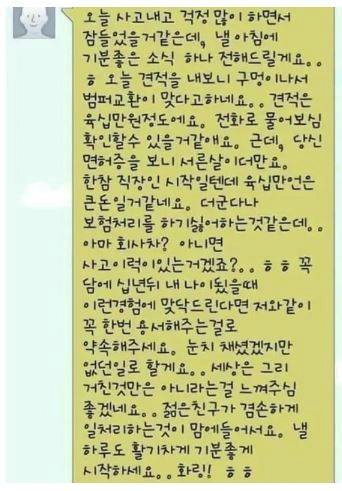 오늘 사고내고 걱정 많이 하면서
잠들었을거같은데, 낼 아침에
기분좋은 소식 하나 전해드릴게요..
ㅎ 오늘 견적을 내보니 구멍이나서
범퍼교환이 맞다고하네요.. 견적은
육십만원정도에요. 전화로 물어보심
확인할수 있을거같애요. 근데, 당신
면허증을 보니 서른살이더만요.
한참 직장인 시작일텐데 육십만언은
큰돈일거같네요. 더군다나
보험처리를 하기싫어하는것같은데..
아마 회사차? 아니면
사고이력이있는거겠죠?.. ㅎㅎ 꼭
담에 십년뒤 내 나이됬을때
이런경험에 맞닥드린다면 저와같이
꼭 한번 용서해주는걸로
약속해주세요. 눈치 채셨겠지만
없던일로 할게요.. 세상은 그리
거친것만은 아니라는걸 느껴주심
좋겠네요.. 젊은친구가 겸손하게
일처리하는것이 맘에들어서요. 낼
하루도 활기차게 기분좋게
시작하세요.. 화링! ㅎㅎ